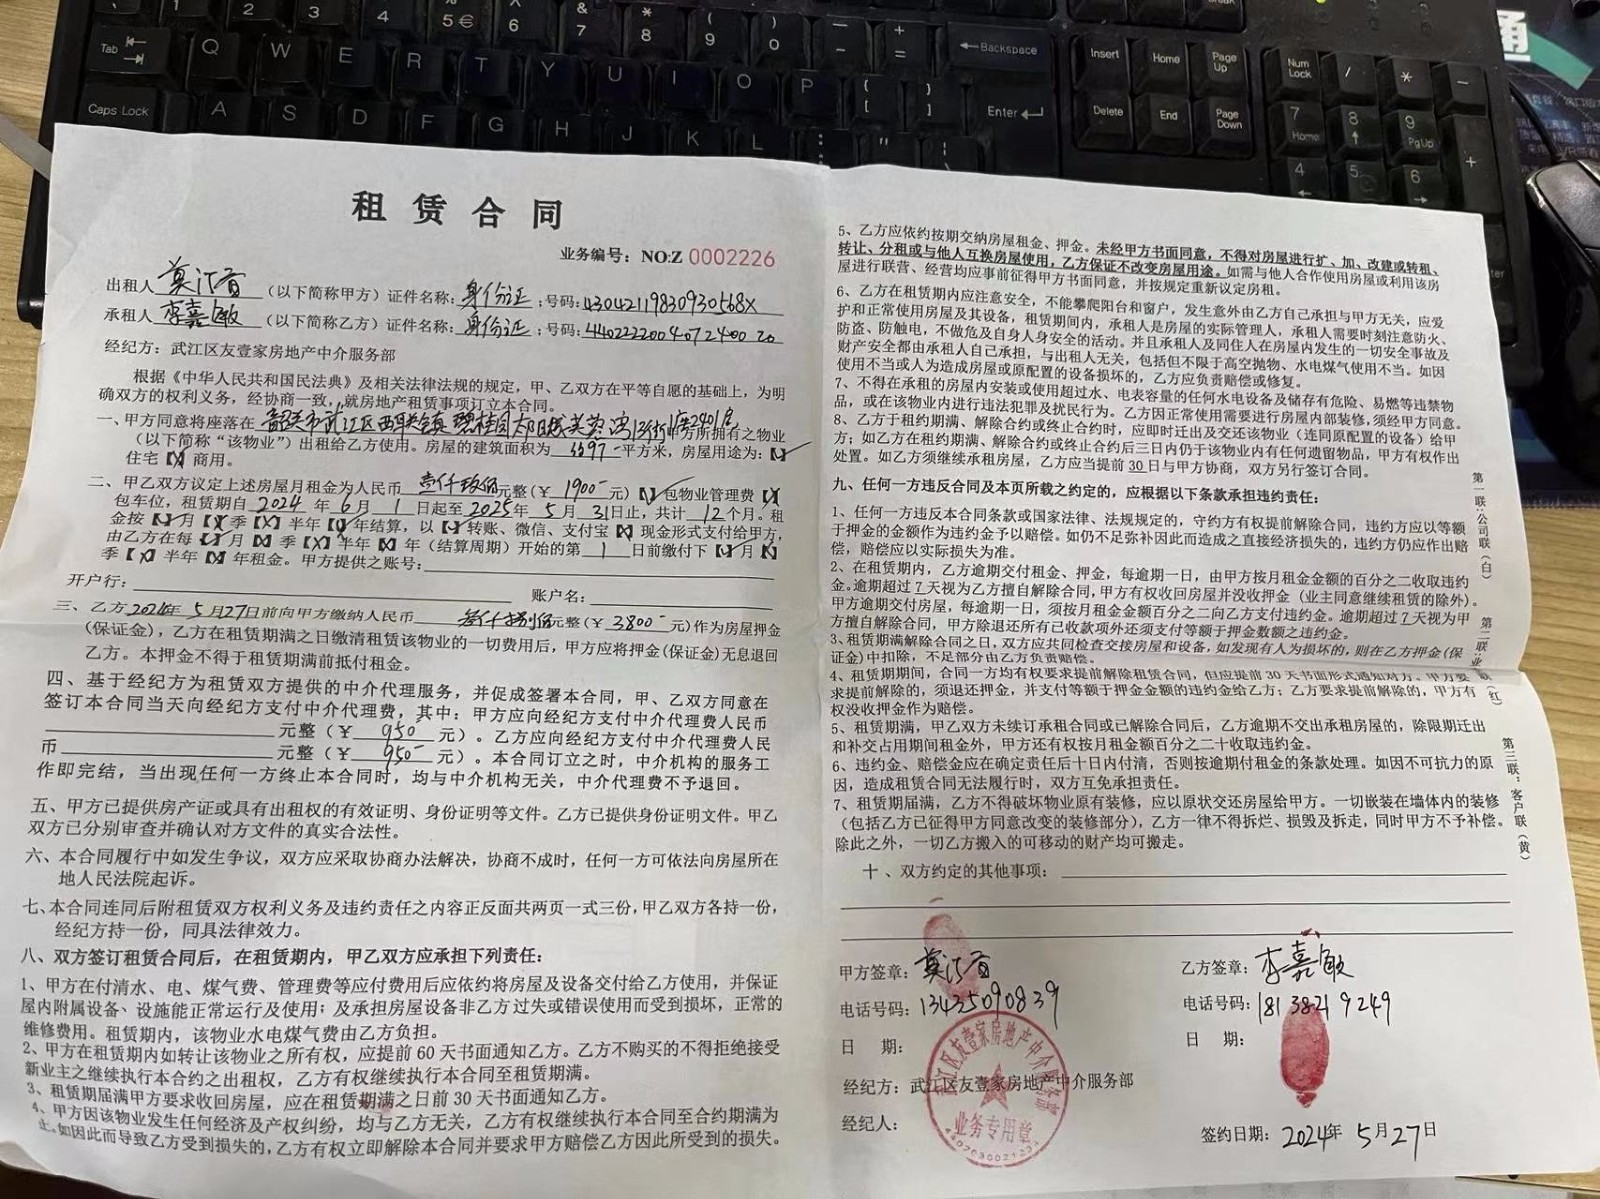 Tab
Q W E R T Y U I O P
Backspace
Insert
Home
Page Up
Num Lock
Caps Lock
A S D F G H J K L
Enter
Delete
End
Page Down
7 Home
8
9 PgUp
4
5
6
租赁合同
业务编号：NO:Z 0002226
出租人 莫江育 （以下简称甲方）证件名称：身份证；号码：43042119830930568X
承租人 李嘉敏 （以下简称乙方）证件名称：身份证；号码：
经纪方：武江区友壹家房地产中介服务部
根据《中华人民共和国民法典》及相关法律法规的规定，甲、乙双方在平等自愿的基础上，为明
确双方的权利义务，经协商一致，就房地产租赁事项订立本合同。
一、甲方同意将座落在 韶关市武江区西联镇碧桂园太阳城芙蓉湾 2401房 甲方所拥有之物业
（以下简称“该物业”）出租给乙方使用。房屋的建筑面积为 平方米，房屋用途为：【✓】
住宅【X】商用。
二、甲乙双方议定上述房屋月租金为人民币 壹仟玖佰 元整（￥ 1900 元）【✓】包物业管理费【X】
包车位，租赁期自 2024 年 6 月 1 日起至 2025 年 5 月 31 日止，共计 12 个月。租
金按【✓】月【X】季【X】半年【X】年结算，以【✓】转账、微信、支付宝【X】现金形式支付给甲方，
由乙方在每【✓】月【X】季【X】半年【X】年（结算周期）开始的第 1 日前缴付下【✓】月【X】
季【X】半年【X】年租金。甲方提供之账号：
开户行： 账户名：
三、乙方 2024年 5月27日前向甲方缴纳人民币 叁仟捌佰 元整（￥ 3800 元）作为房屋押金
（保证金），乙方在租赁期满之日缴清租赁该物业的一切费用后，甲方应将押金（保证金）无息退回
乙方。本押金不得于租赁期满前抵付租金。
四、基于经纪方为租赁双方提供的中介代理服务，并促成签署本合同，甲、乙双方同意在
签订本合同当天向经纪方支付中介代理费，其中：甲方应向经纪方支付中介代理费人民币
元整（￥ 950 元）。乙方应向经纪方支付中介代理费人民
币 元整（￥ 950 元）。本合同订立之时，中介机构的服务工
作即完结，当出现任何一方终止本合同时，均与中介机构无关，中介代理费不予退回。
五、甲方已提供房产证或具有出租权的有效证明、身份证明等文件。乙方已提供身份证明文件。甲乙
双方已分别审查并确认对方文件的真实合法性。
六、本合同履行中如发生争议，双方应采取协商办法解决，协商不成时，任何一方可依法向房屋所在
地人民法院起诉。
七、本合同连同后附租赁双方权利义务及违约责任之内容正反面共两页一式三份，甲乙双方各持一份，
经纪方持一份，同具法律效力。
八、双方签订租赁合同后，在租赁期内，甲乙双方应承担下列责任：
1、甲方在付清水、电、煤气费、管理费等应付费用后应依约将房屋及设备交付给乙方使用，并保证
屋内附属设备、设施能正常运行及使用；及承担房屋设备非乙方过失或错误使用而受到损坏，正常的
维修费用。租赁期内，该物业水电煤气费由乙方负担。
2、甲方在租赁期内如转让该物业之所有权，应提前 60 天书面通知乙方。乙方不购买的不得拒绝接受
新业主之继续执行本合约之出租权，乙方有权继续执行本合同至租赁期满。
3、租赁期届满甲方要求收回房屋，应在租赁期满之日前 30 天书面通知乙方。
4、甲方因该物业发生任何经济及产权纠纷，均与乙方无关，乙方有权继续执行本合同至合约期满为
止。如因此而导致乙方受到损失的，乙方有权立即解除本合同并要求甲方赔偿乙方因此所受到的损失。
5、乙方应依约按期交纳房屋租金、押金。未经甲方书面同意，不得对房屋进行扩、加、改建或转租、
转让、分租或与他人互换房屋使用，乙方保证不改变房屋用途。如需与他人合作使用房屋或利用该房
屋进行联营、经营均应事前征得甲方书面同意，并按规定重新议定房租。
6、乙方在租赁期内应注意安全，不能攀爬阳台和窗户，发生意外由乙方自己承担与甲方无关，应爱
护和正常使用房屋及其设备，租赁期间内，承租人是房屋的实际管理人，承租人需要时刻注意防火、
防盗、防触电，不做危及自身人身安全的活动。并且承租人及同住人在房屋内发生的一切安全事故及
财产安全都由承租人自己承担，与出租人无关，包括但不限于高空抛物、水电煤气使用不当。如因
使用不当或人为造成房屋或原配置的设备损坏的，乙方应负责赔偿或修复。
7、不得在承租的房屋内安装或使用超过水、电表容量的任何水电设备及储存有危险、易燃等违禁物
品，或在该物业内进行违法犯罪及扰民行为。乙方因正常使用需要进行房屋内部装修，须经甲方同意。
8、乙方于租约期满、解除合约或终止合约时，应即时迁出及交还该物业（连同原配置的设备）给甲
方；如乙方在租约期满、解除合约或终止合约后三日内仍于该物业内有任何遗留物品，甲方有权作出
处置。如乙方须继续承租房屋，乙方应当提前 30 日与甲方协商，双方另行签订合同。
九、任何一方违反合同及本页所载之约定的，应根据以下条款承担违约责任：
1、任何一方违反本合同条款或国家法律、法规规定的，守约方有权提前解除合同，违约方应以等额
于押金的金额作为违约金予以赔偿。如仍不足弥补因此而造成之直接经济损失的，违约方仍应作出赔
偿，赔偿应以实际损失为准。
2、在租赁期内，乙方逾期交付租金、押金，每逾期一日，由甲方按月租金金额的百分之二收取违约
金。逾期超过 7 天视为乙方擅自解除合同，甲方有权收回房屋并没收押金（业主同意继续租赁的除外）。
甲方逾期交付房屋，每逾期一日，须按月租金金额百分之二向乙方支付违约金。逾期超过 7 天视为甲
方擅自解除合同，甲方除退还所有已收款项外还须支付等额于押金数额之违约金。
3、租赁期满解除合同之日，双方应共同检查交接房屋和设备，如发现有人为损坏的，则在乙方押金（保
证金）中扣除，不足部分由乙方负责赔偿。
4、租赁期期间，合同一方均有权要求提前解除租赁合同，但应提前 30 天书面形式通知对方。甲方要
求提前解除的，须退还押金，并支付等额于押金金额的违约金给乙方；乙方要求提前解除的，甲方有
权没收押金作为赔偿。
5、租赁期满，甲甲乙双方未续订承租合同或已解除合同后，乙方逾期不交出承租房屋的，除限期迁出
和补交占用期间租金外，甲方还有权按月租金额百分之二十收取违约金。
6、违约金、赔偿金应在确定责任后十日内付清，否则按逾期付租金的条款处理。如因不可抗力的原
因，造成租赁合同无法履行时，双方互免承担责任。
7、租赁期届满，乙方不得破坏物业原有装修，应以原状交还房屋给甲方。一切嵌装在墙体内的装修
（包括乙方已征得甲方同意改变的装修部分），乙方一律不得拆烂、损毁及拆走，同时甲方不予补偿。
除此之外，一切乙方搬入的可移动的财产均可搬走。
十、双方约定的其他事项：
第一联：公司联（白）
第二联：业 （红）
第三联：客户联（黄）
甲方签章：莫江育
电话号码：13435090839
日 期：
经纪方：武江区友壹家房地产中介服务部
经纪人：
武江区友壹家房地产中介服务部
业务专用章
乙方签章：李嘉敏
电话号码：18138219249
日 期：
签约日期：2024年 5月27日